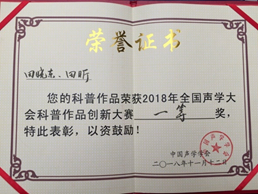 荣誉证书
田晓杰、田昕
您的科普作品荣获2018年全国声学大
会科普作品创新大赛 一等 奖，
特此表彰，以资鼓励！
中国声学学会
二〇一八年十一月十二日